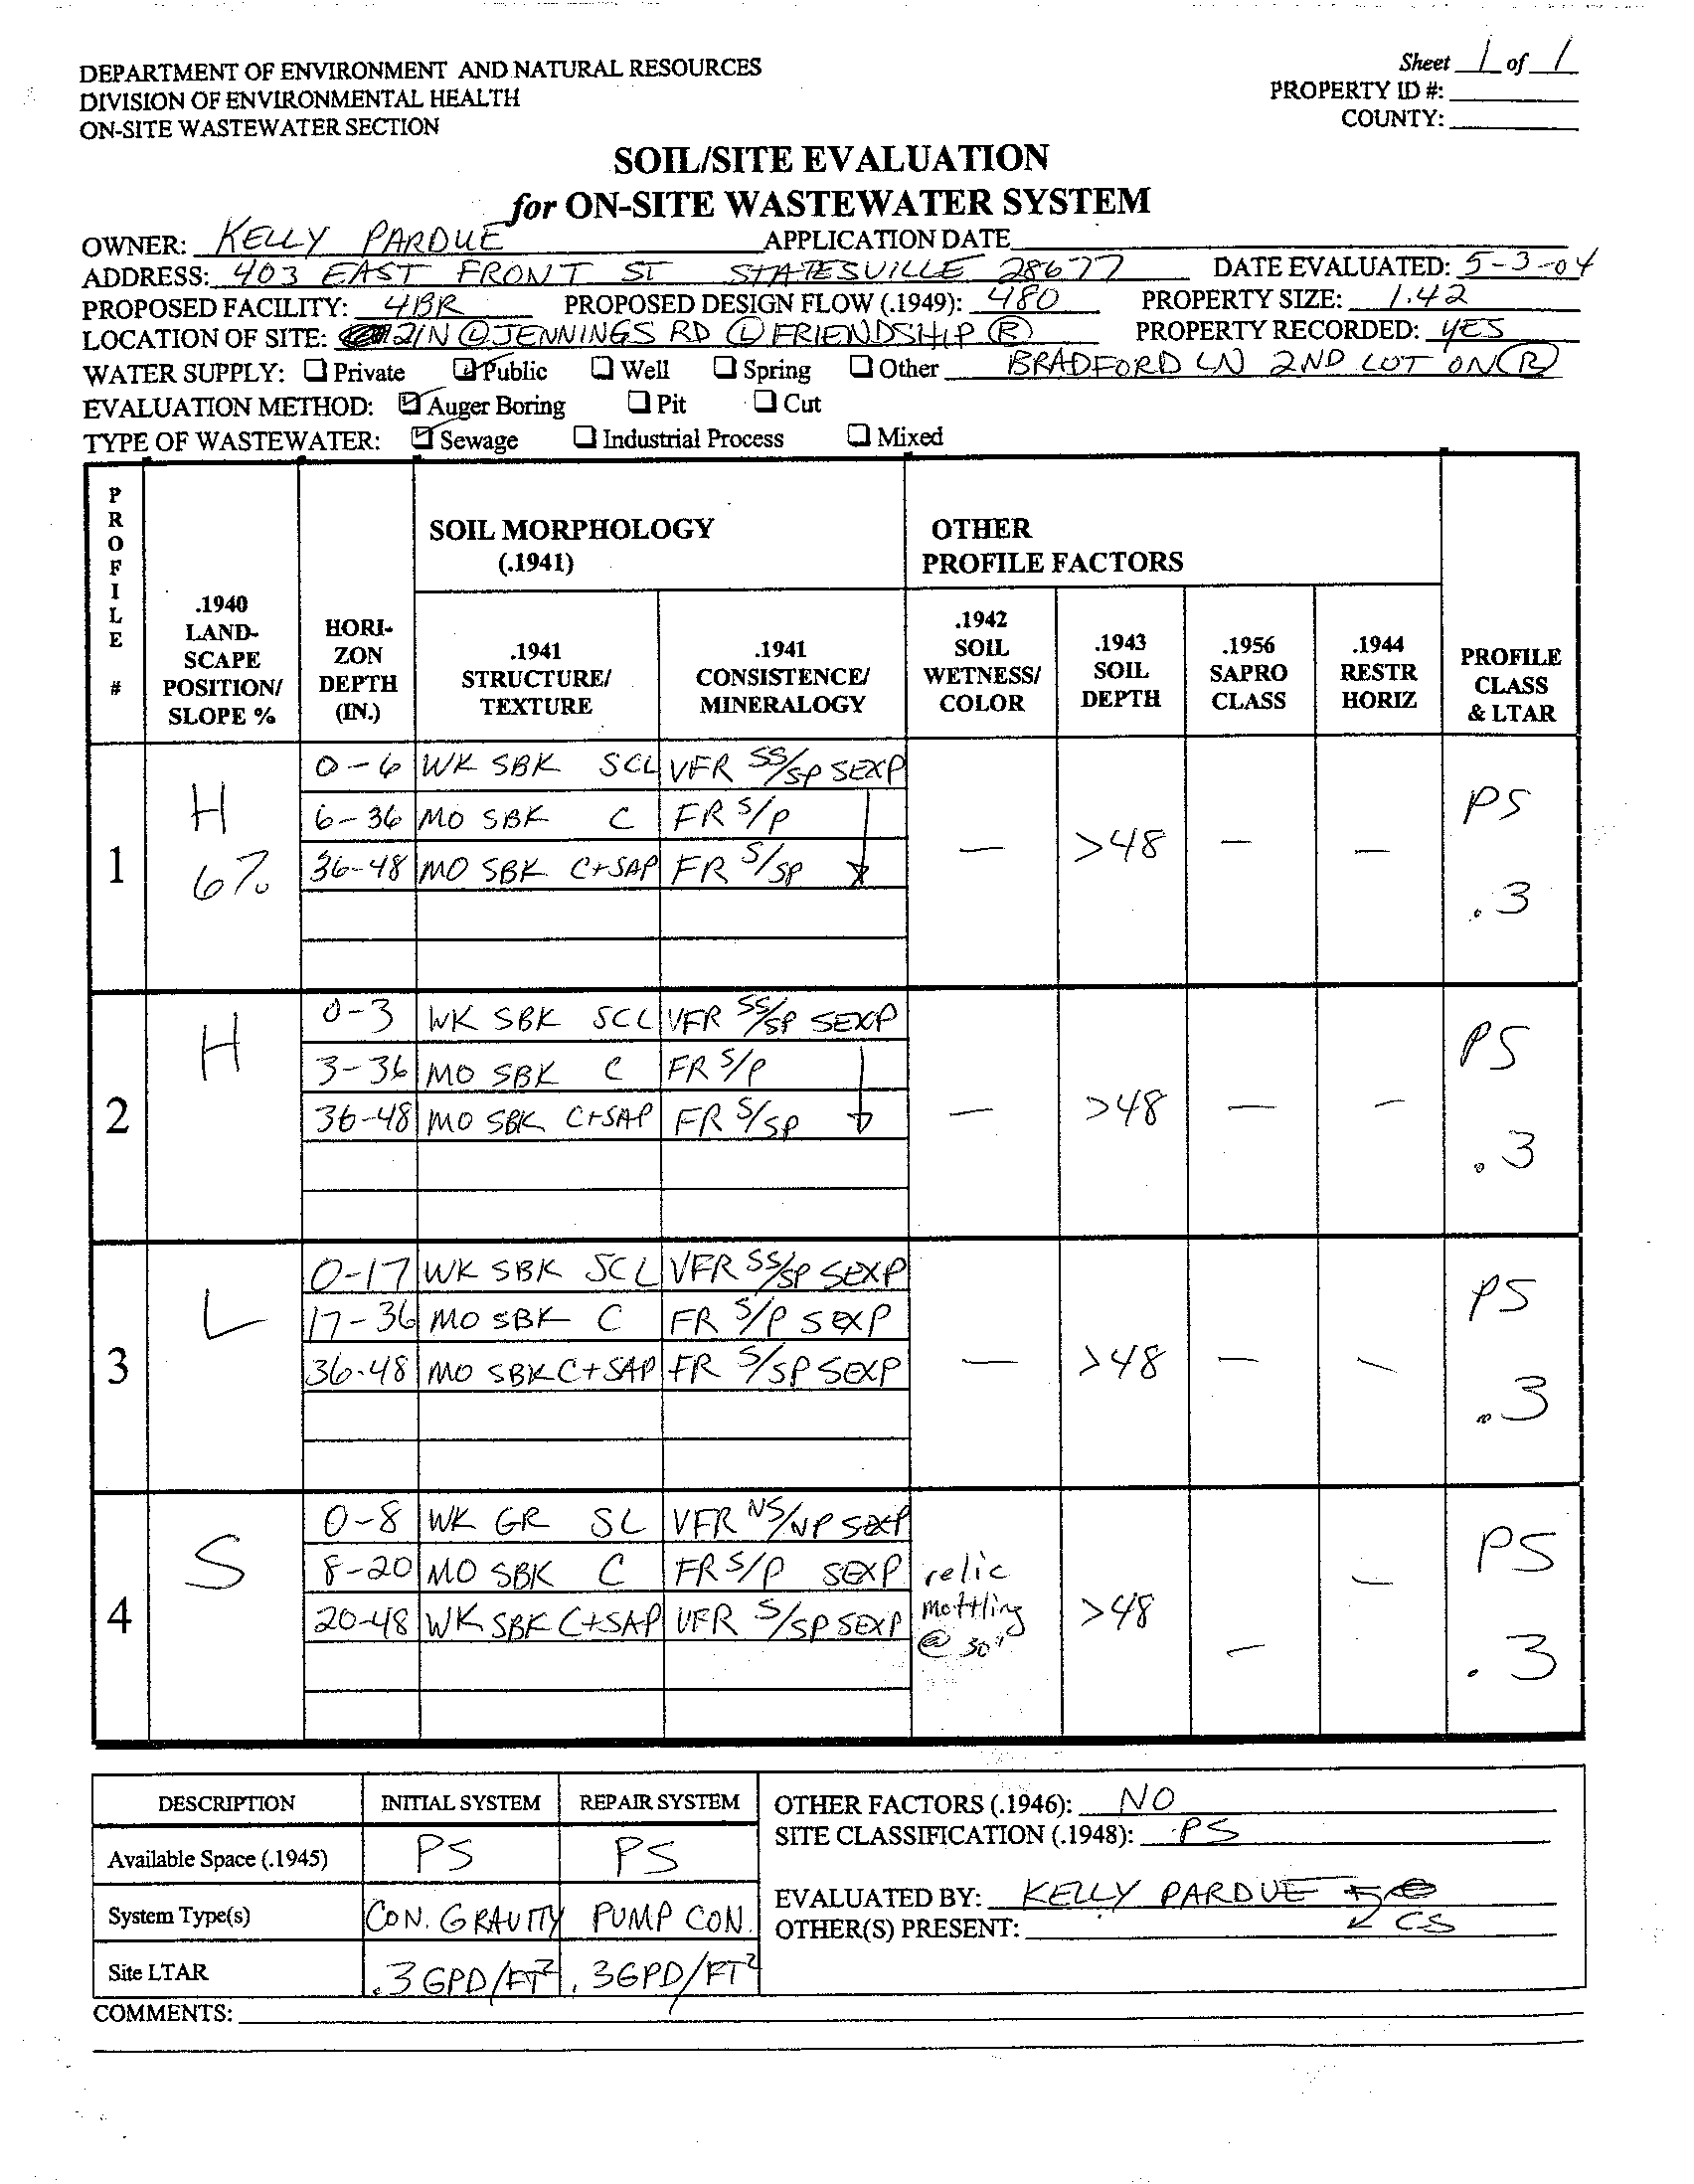 Sheet 1 of 1
DEPARTMENT OF ENVIRONMENT AND NATURAL RESOURCES
PROPERTY ID #:
DIVISION OF ENVIRONMENTAL HEALTH
COUNTY:
ON-SITE WASTEWATER SECTION
SOIL/SITE EVALUATION
for ON-SITE WASTEWATER SYSTEM
OWNER: KELLY PARDUE APPLICATION DATE
ADDRESS: 403 EAST FRONT ST STATESVILLE 28677 DATE EVALUATED: 5-3-04
PROPOSED FACILITY: 4BR PROPOSED DESIGN FLOW (.1949): 480 PROPERTY SIZE: 1.42
LOCATION OF SITE: 21N @ JENNINGS RD Ⓛ FRIENDSHIP Ⓡ PROPERTY RECORDED: YES
WATER SUPPLY: ☐ Private ☑ Public ☐ Well ☐ Spring ☐ Other BRADFORD LN 2ND LOT ON Ⓡ
EVALUATION METHOD: ☑ Auger Boring ☐ Pit ☐ Cut
TYPE OF WASTEWATER: ☑ Sewage ☐ Industrial Process ☐ Mixed
PROFILE #
.1940 LAND-SCAPE POSITION/ SLOPE %
HORI-ZON DEPTH (IN.)
SOIL MORPHOLOGY (.1941)
OTHER PROFILE FACTORS
.1941 STRUCTURE/ TEXTURE
.1941 CONSISTENCE/ MINERALOGY
.1942 SOIL WETNESS/ COLOR
.1943 SOIL DEPTH
.1956 SAPRO CLASS
.1944 RESTR HORIZ
PROFILE CLASS & LTAR
1 H 6%
0-6 WK SBK SCL VFR SS/SP SEXP
6-36 MO SBK C FR S/P
36-48 MO SBK C+SAP FR S/SP
— >48 — — PS .3
2 H
0-3 WK SBK SCL VFR SS/SP SEXP
3-36 MO SBK C FR S/P
36-48 MO SBK C+SAP FR S/SP
— >48 — — PS .3
3 L
0-17 WK SBK SCL VFR SS/SP SEXP
17-36 MO SBK C FR S/P SEXP
36-48 MO SBK C+SAP FR S/SP SEXP
— >48 — — PS .3
4 S
0-8 WK GR SL VFR NS/NP SEXP
8-20 MO SBK C FR S/P SEXP
20-48 WK SBK C+SAP VFR S/SP SEXP
relic mottling @ 30" >48 — — PS .3
DESCRIPTION INITIAL SYSTEM REPAIR SYSTEM
Available Space (.1945) PS PS
System Type(s) CON. GRAVITY PUMP CON.
Site LTAR .3 GPD/FT² .3GPD/FT²
OTHER FACTORS (.1946): NO
SITE CLASSIFICATION (.1948): PS
EVALUATED BY: KELLY PARDUE
OTHER(S) PRESENT: CS
COMMENTS: